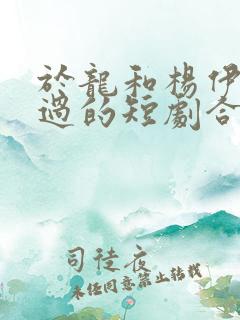 於龍和楊伊
過的短劇合
司徒夜
未經同意禁止轉載